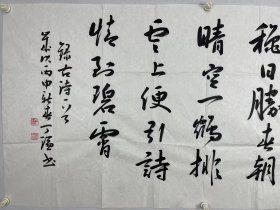 秋日勝春朝
晴空一鶴排
雲上便引詩
情到碧霄
錄古诗一首
丙申新春 书